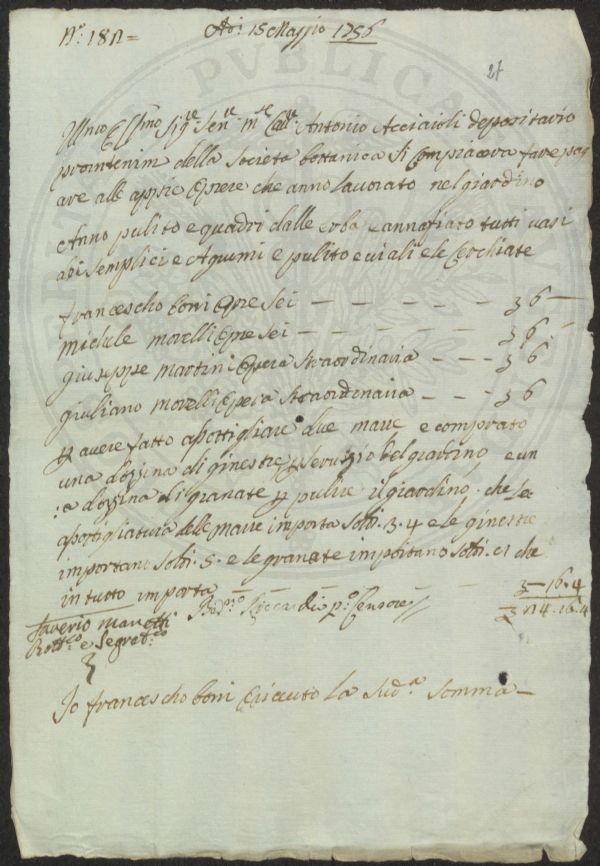 N.º 181=
Adi 15 Maggio 1756
21
Illmo Sig.re Sen.re Antonio Acciaioli depositario
della Societa bottanica Si Compiacera fare pag
are alle appie Opere che anno lavorato nel giardino
Anno pulito e quadri dalle erba e annafiato tutti vasi
di Semplici e Agrumi e pulito e viali e le Cerchiate
francescho boni Opre Sei — — — — — — 3 6 —
Michele morelli Opre Sei — — — — — — 3 6 —
giuseppe martini Opera Straordinaria — — — 3 6
giuliano morelli Opera Straordinaria — — — 3 6
avere fatto apottigliare due marre e comprato
una dozzina di ginestre Servizio del giardino e un
:a dozzina di granate pulire il giardino, che la
apotigliatura delle marre importa Soldi 3.4 e le ginestre
importano Soldi .5. e le granate importano Soldi che
in tutto importa — — — 3 — 16.4
Saverio Manetti Riccardi p.º Censore 14.16.4
e Segret.rio
Io francescho boni O riceuto La Sud.a Somma —